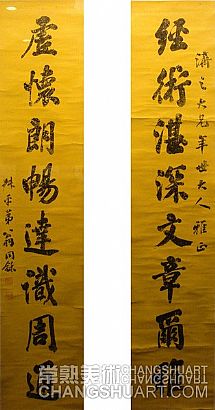 濟之大兄年世大人雅正
經術湛深文章爾
虛懷朗暢達識周通
叔平弟翁同龢
常熟美術 CHANGSHUART
CHANGSHUART.COM